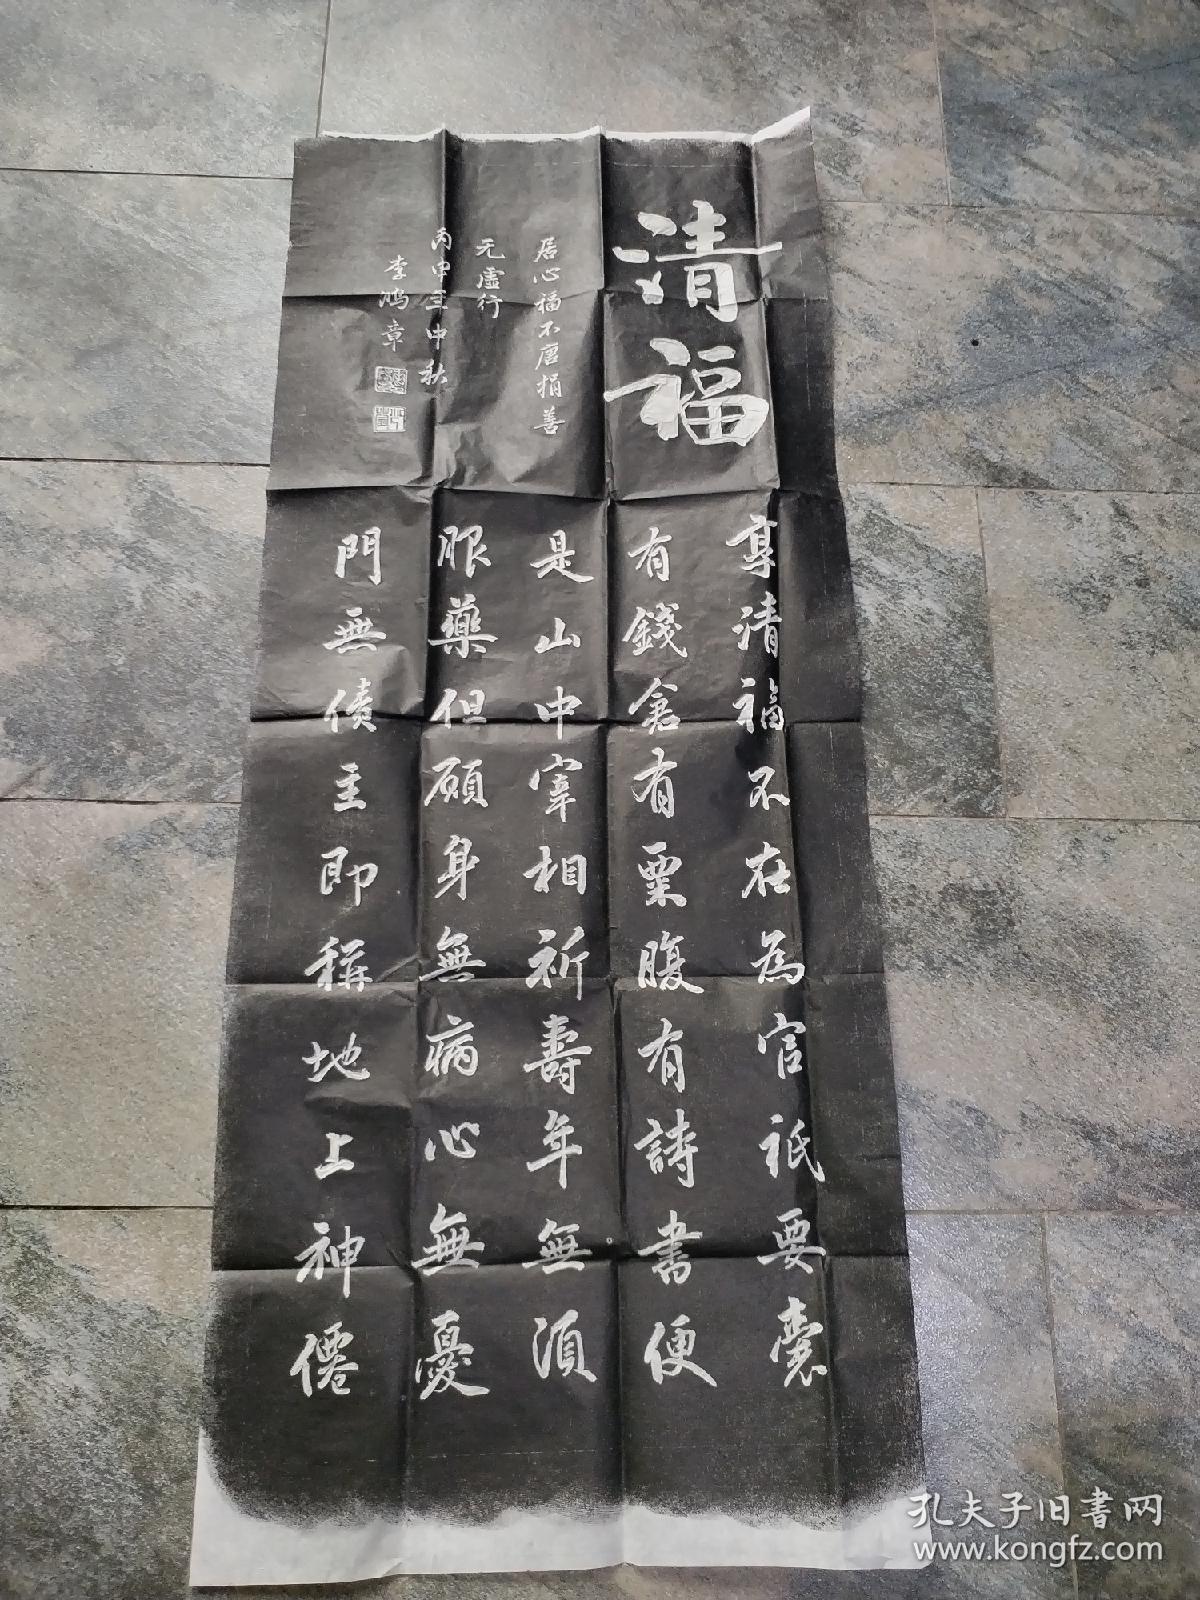 清福
享清福不在為官祇要囊
有錢倉有粟腹有詩書便
是山中宰相祈壽年無須
服藥但願身無病心無憂
門無債主即稱地上神僊
居心福不唐捐善
无虛行
丙申年中秋
李鴻章
孔夫子旧書网
www.kongfz.com